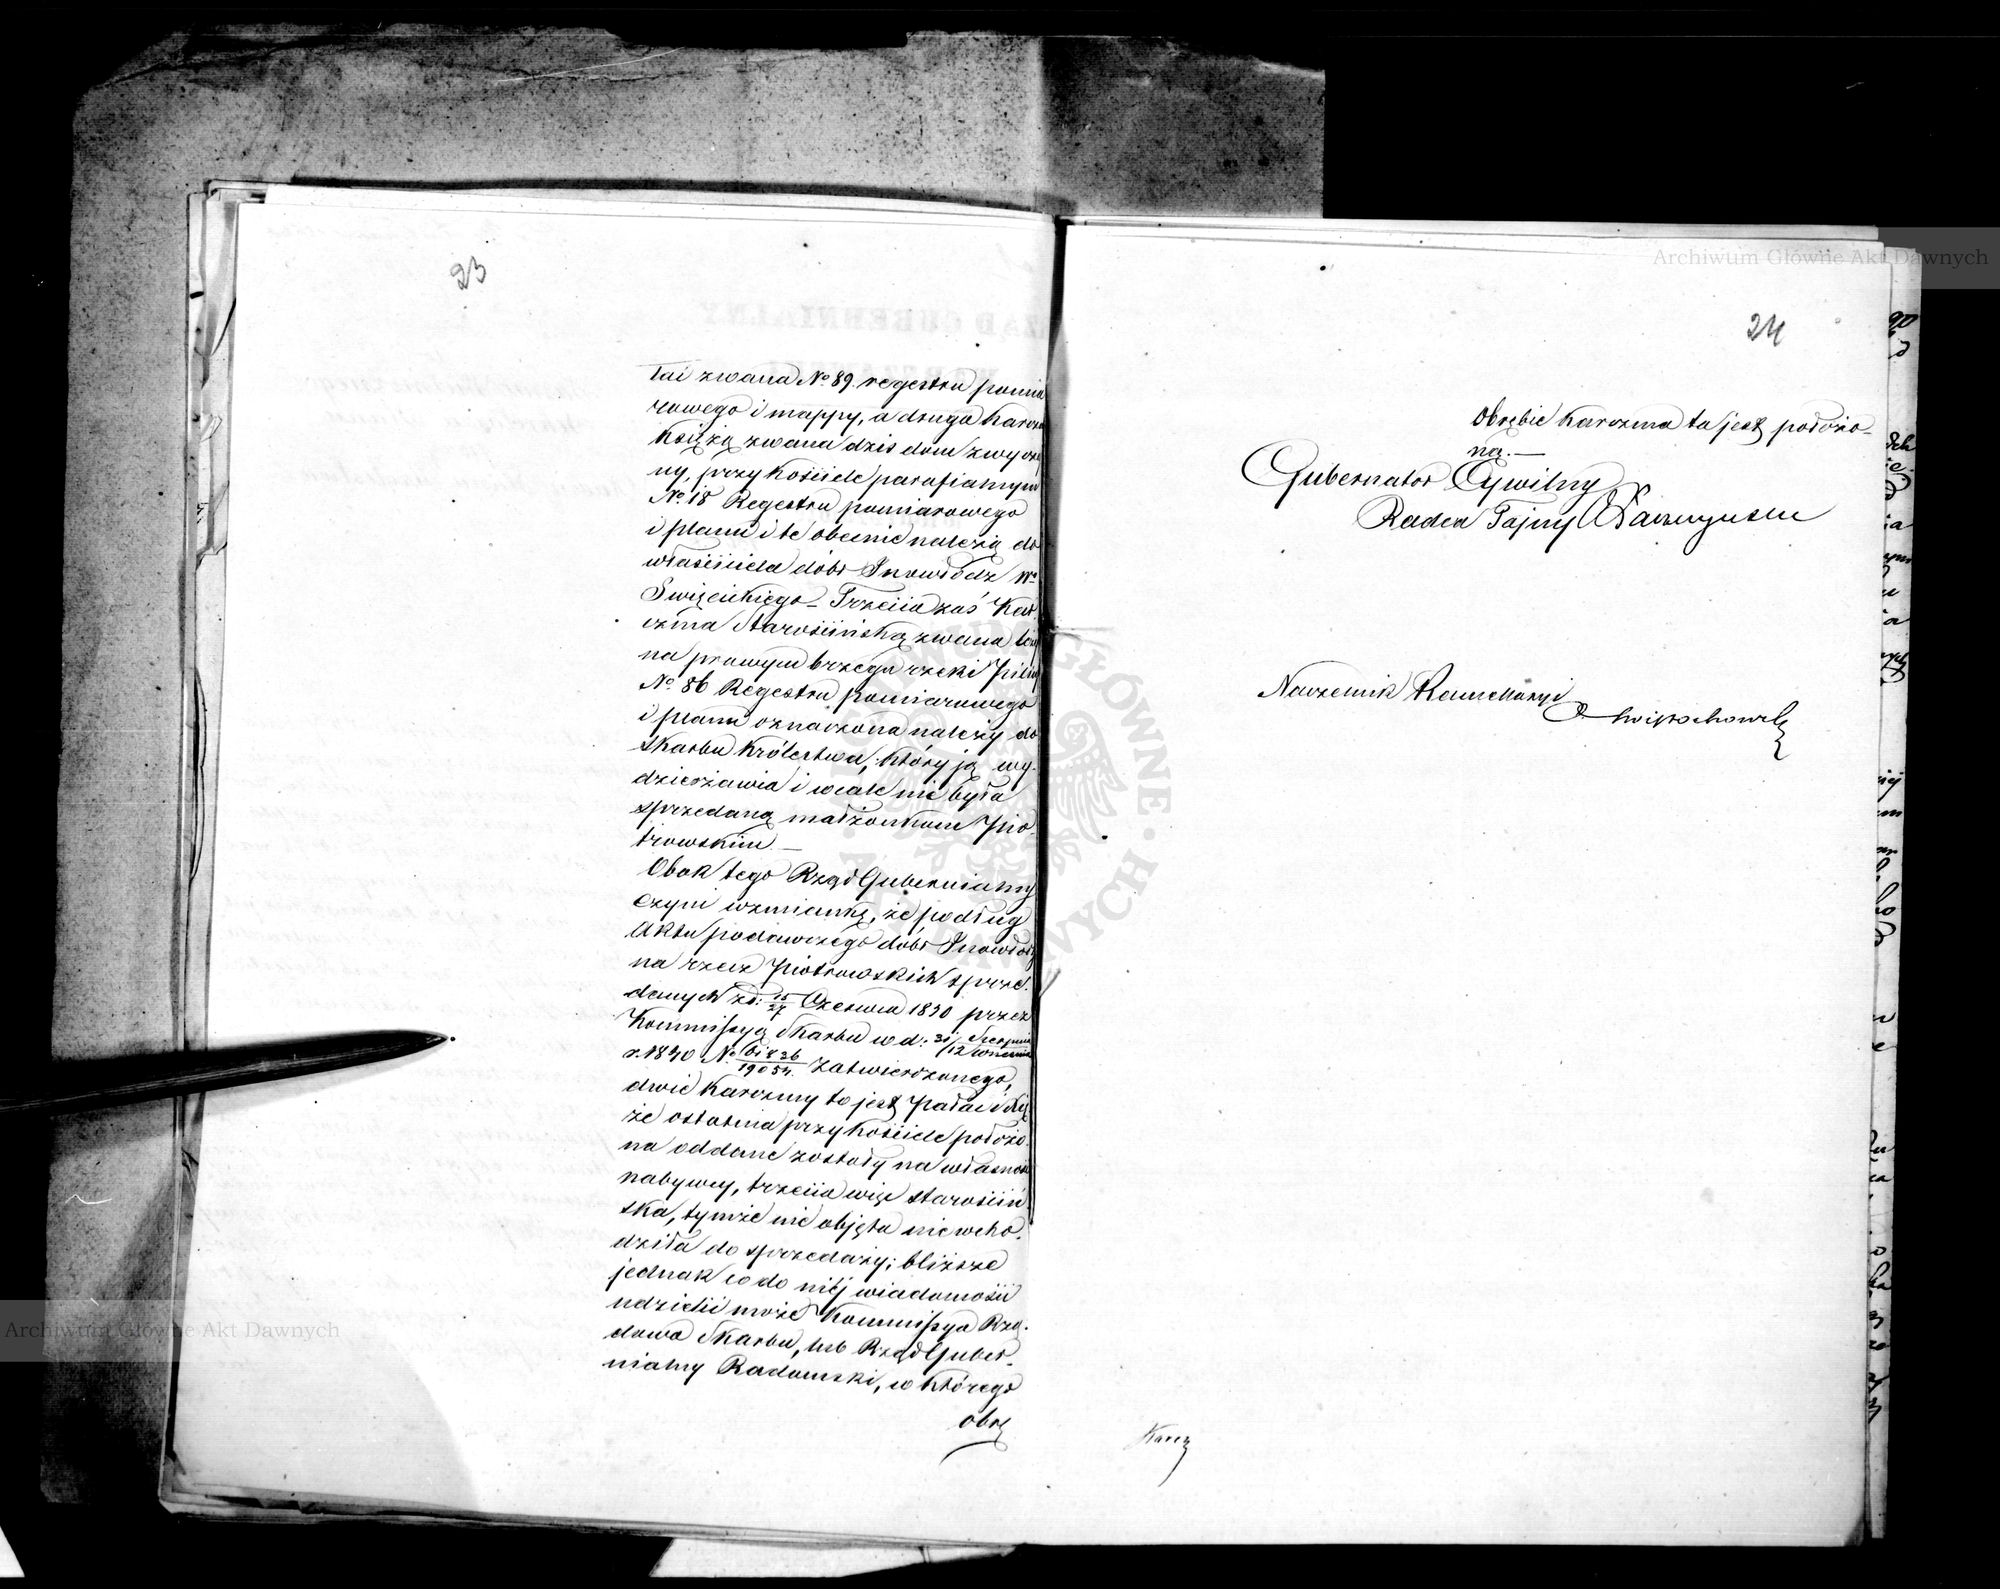 23
łai zwana No 89. regestru pomia
rowego i mappy, a druga Karczma
Księżą zwana dziś dom zwycza
ny, przy Kościele parafialnym
No 18 Regestru pomiarowego
i planu i te obecnie należą do
właściciela dóbr Inowłódz Wo
Święcickiego – Trzecia zaś Kar
czma Starościńską zwana leży
na prawym brzegu rzeki Pilicy
No 86 Regestru pomiarowego
i planu oznaczona należy do
Skarbu Królestwa, który ją wy-
dzierżawia i wcale nie była
sprzedaną małżonkom Pio-
trowskim. —
Obok tego Rząd Gubernialny
czyni wzmiankę, że podług
Aktu podawczego dóbr Inowłódz
na rzecz Piotrowskich sprze-
danych zd: 15/27 Czerwca 1830 przez
Kommissyą Skarbu w d: 31 Sierpnia/12 Września
r. 1830 No 61836/19054. zatwierdzonego,
dwie Karczmy to jest Pałac i Xię
że ostatnia przy Kościele położo-
na oddane zostały na własność
nabywcy, trzecia więc starościń
ska, tymże nie objęta nie wcho-
dziła do sprzedaży; bliższe
jednak co do niéj wiadomości
udzielić może Kommissya Rzą-
dowa Skarbu, lub Rząd Guber-
nialny Radomski, w którego
obrę
24
obrębie Karczma ta jest położo-
ną. —
Gubernator Cywilny
Radca Tajny
Naczelnik Kancellaryi
Karcz
Archiwum Główne Akt Dawnych
Archiwum Główne Akt Dawnych